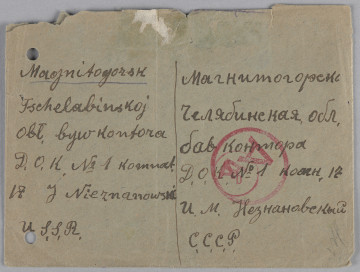 Magnitogorsk
Tschelabinskoj
obł. bywkontora
D.O.K. № 1 komnat
17 J Nieznanowski
U.S.S.R.
Магнитогорск
Челябинская обл.
бав контора
Д.О.К. № 1 комн. 17
И. М. Незнановский
С.С.С.Р